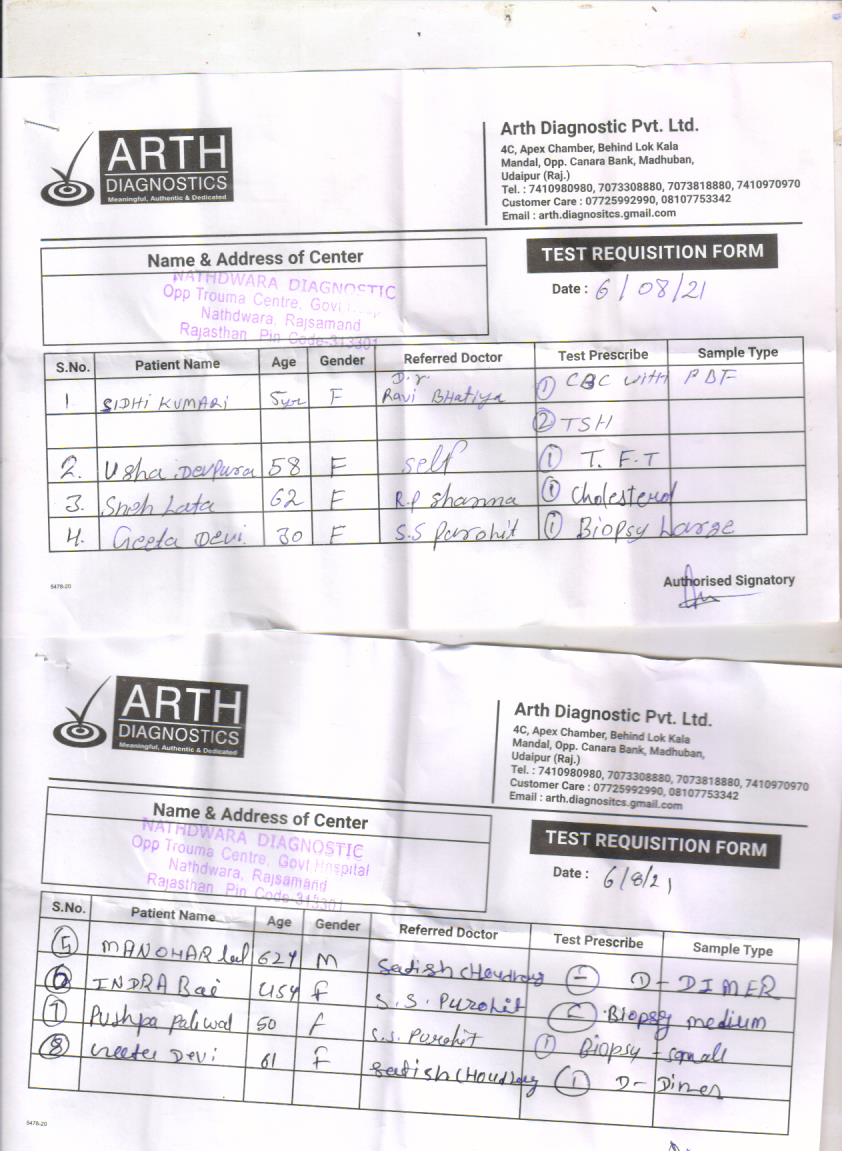 ARTH
DIAGNOSTICS
Meaningful, Authentic & Dedicated
Arth Diagnostic Pvt. Ltd.
4C, Apex Chamber, Behind Lok Kala
Mandal, Opp. Canara Bank, Madhuban,
Udaipur (Raj.)
Tel. : 7410980980, 7073308880, 7073818880, 7410970970
Customer Care : 07725992990, 08107753342
Email : arth.diagnositcs.gmail.com
Name & Address of Center
NATHDWARA DIAGNOSTIC
Opp Trouma Centre, Govt
Nathdwara, Rajsamand
Rajasthan Pin Code-313301
TEST REQUISITION FORM
Date : 6/08/21
S.No. Patient Name Age Gender Referred Doctor Test Prescribe Sample Type
1. SIDHI KUMARI 5yr F D.r. Ravi BHatiya ① CBC with PBF
② TSH
2. Usha Devpura 58 F self ① T.F.T
3. Sneh Lata 62 F R.P Sharma ① Cholesterol
4. Geeta Devi. 30 F S.S Purohit ① Biopsy Large
Authorised Signatory
5478-20
ARTH
DIAGNOSTICS
Meaningful, Authentic & Dedicated
Arth Diagnostic Pvt. Ltd.
4C, Apex Chamber, Behind Lok Kala
Mandal, Opp. Canara Bank, Madhuban,
Udaipur (Raj.)
Tel. : 7410980980, 7073308880, 7073818880, 7410970970
Customer Care : 07725992990, 08107753342
Email : arth.diagnositcs.gmail.com
Name & Address of Center
NATHDWARA DIAGNOSTIC
Opp Trouma Centre, Govt Hospital
Nathdwara, Rajsamand
Rajasthan Pin Code-313301
TEST REQUISITION FORM
Date : 6/8/21
S.No. Patient Name Age Gender Referred Doctor Test Prescribe Sample Type
⑤ MANOHAR lal 62y M Satish CHoudhary D-DIMER
⑥ INDRA Bai 45y F S.S. Purohit Biopsy medium
⑦ Pushpa Paliwal 50 F S.S. Purohit ① Biopsy - small
⑧ Geeta Devi 61 F Satish CHoudhary ① D-Dimer
5478-20